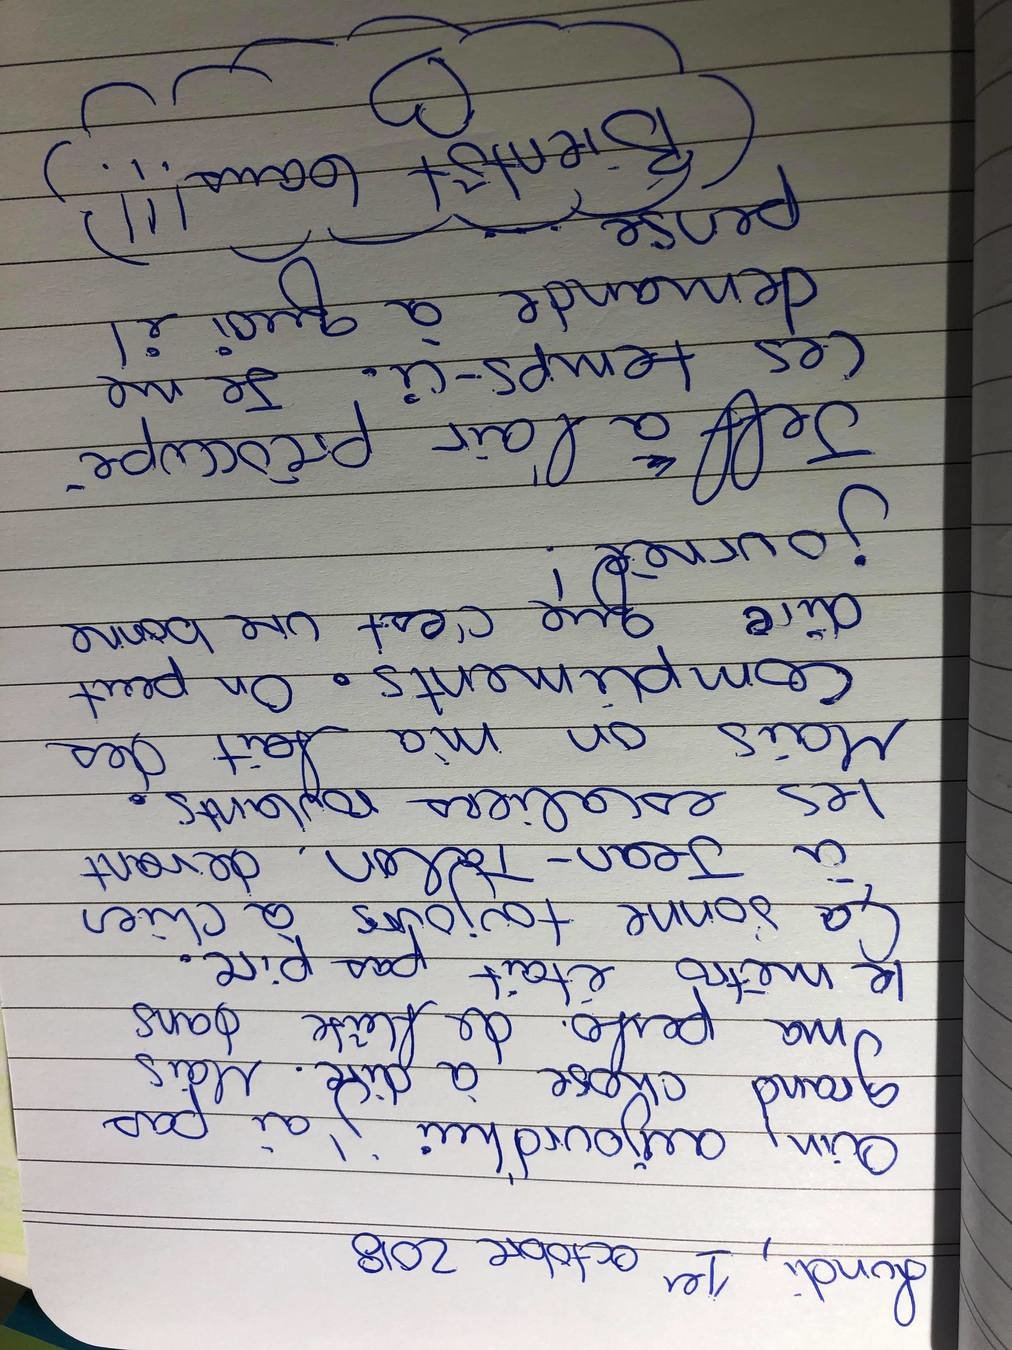 Lundi, 1er octobre 2018
Ouin, aujourd'hui j'ai pas
grand chose à dire. Mais
ma perfo de flûte dans
le métro était pas pire.
Ça sonne toujours à chier
à Jean-Talon, devant
les escaliers roulants.
Mais on m'a fait des
compliments. On peut
dire que c'est une bonne
journée!
Jeff a l'air préoccupé
ces temps-ci. Je me
demande à quoi il
pense...
(Bientôt